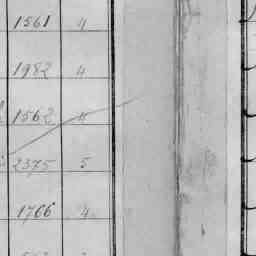 1561 4
1982 4
1562 4
2375 5
1766 4